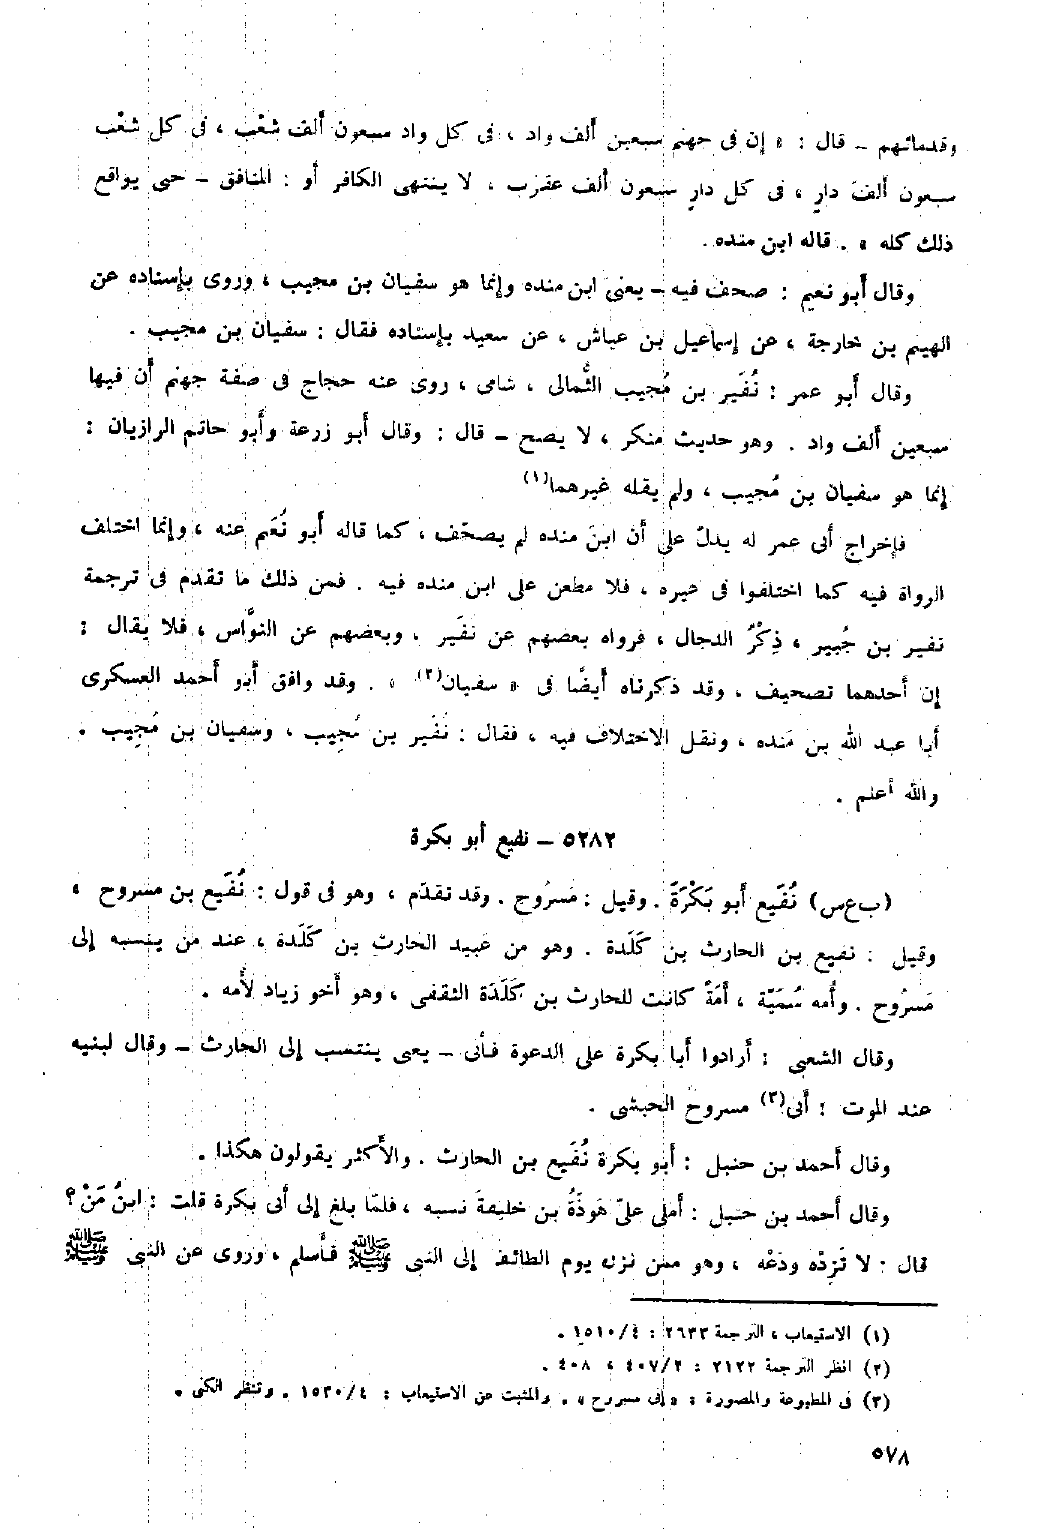 وقدمائهم – قال : « إن فى جهنم سبعين ألف واد ، فى كل واد سبعون ألف شعْب ، فى كل شعْب
سبعون ألفَ دارٍ ، فى كل دارٍ سبعون ألف عقرب ، لا ينتهى الكافر أو : المنافق – حتى يواقع
ذلك كله » . قاله ابن منده .
وقال أبو نعيم : صحف فيه – يعنى ابن منده وإنما هو سفيان بن مجيب ، وروى بإسناده عن
الهيثم بن خارجة ، عن إسماعيل بن عياش ، عن سعيد بإسناده فقال : سفيان بن مجيب .
وقال أبو عمر : نُفَير بن مُجيب الثُّمالى ، شامى ، روى عنه حجاج فى صفة جهنم أن فيها
سبعين ألف واد . وهو حديث منكر ، لا يصح – قال : وقال أبو زرعة وأبو حاتم الرازيان :
إنما هو سفيان بن مُجيب ، ولم يقله غيرهما(١)
فإخراج أبى عمر له يدلّ على أن ابنَ منده لم يصحّف ، كما قاله أبو نُعَيم عنه ، وإنما اختلف
الرواة فيه كما اختلفوا فى غيره ، فلا مطعن على ابن منده فيه . فمن ذلك ما تقدم فى ترجمة
نفير بن جُبير ، ذِكْرُ الدجال ، فرواه بعضهم عن نفَير . وبعضهم عن النوَّاس ، فلا يقال :
إن أحدهما تصحيف ، وقد ذكرناه أيضًا فى « سفيان(٢) » . وقد وافق أبو أحمد العسكرى
أبا عبد الله بن مَنده ، ونقل الاختلاف فيه ، فقال : نُفَير بن مُجِيب ، وسفيان بن مُجِيب .
والله أعلم .
٥٢٨٢ – نفيع أبو بكرة
(ب ع س) نُفَيع أبو بَكْرَةَ . وقيل : مَسرُوح . وقد تقدّم ، وهو فى قول : نُفَيع بن مسروح ،
وقيل : نفيع بن الحارث بن كَلَدة . وهو من عبيد الحارث بن كَلَدة ، عند من ينسبه إلى
مَسرُوح . وأُمه سُمَيّة ، أَمَةٌ كانت للحارث بن كَلَدَة الثقفى ، وهو أخو زياد لأُمه .
وقال الشعبى : أرادوا أبا بكرة على الدعوة فأبى – يعنى ينتسب إلى الحارث – وقال لبنيه
عند الموت : أبى(٣) مسروحُ الحبشى .
وقال أحمد بن حنبل : أبو بكرة نُفَيع بن الحارث . والأكثر يقولون هكذا .
وقال أحمد بن حنبل : أملى علىّ هَوذَةُ بن خليفةَ نسبه ، فلمّا بلغ إلى أبى بكرة قلت : ابنُ مَنْ ؟
قال : لا تَزِدْه ودَعْه ، وهو ممن نزل يوم الطائف إلى النبى ﷺ فأسلم ، وروى عن النبى ﷺ
(١) الاستيعاب ، الترجمة ٢٦٣٣ : ١٥١٠/٤ .
(٢) انظر الترجمة ٢١٢٢ : ٤٠٧/٢ ، ٤٠٨ .
(٣) فى المطبوعة والمصورة : « إلى مسروح » . والمثبت عن الاستيعاب : ١٥٣٠/٤ . وتنظر الكنى .
٥٧٨